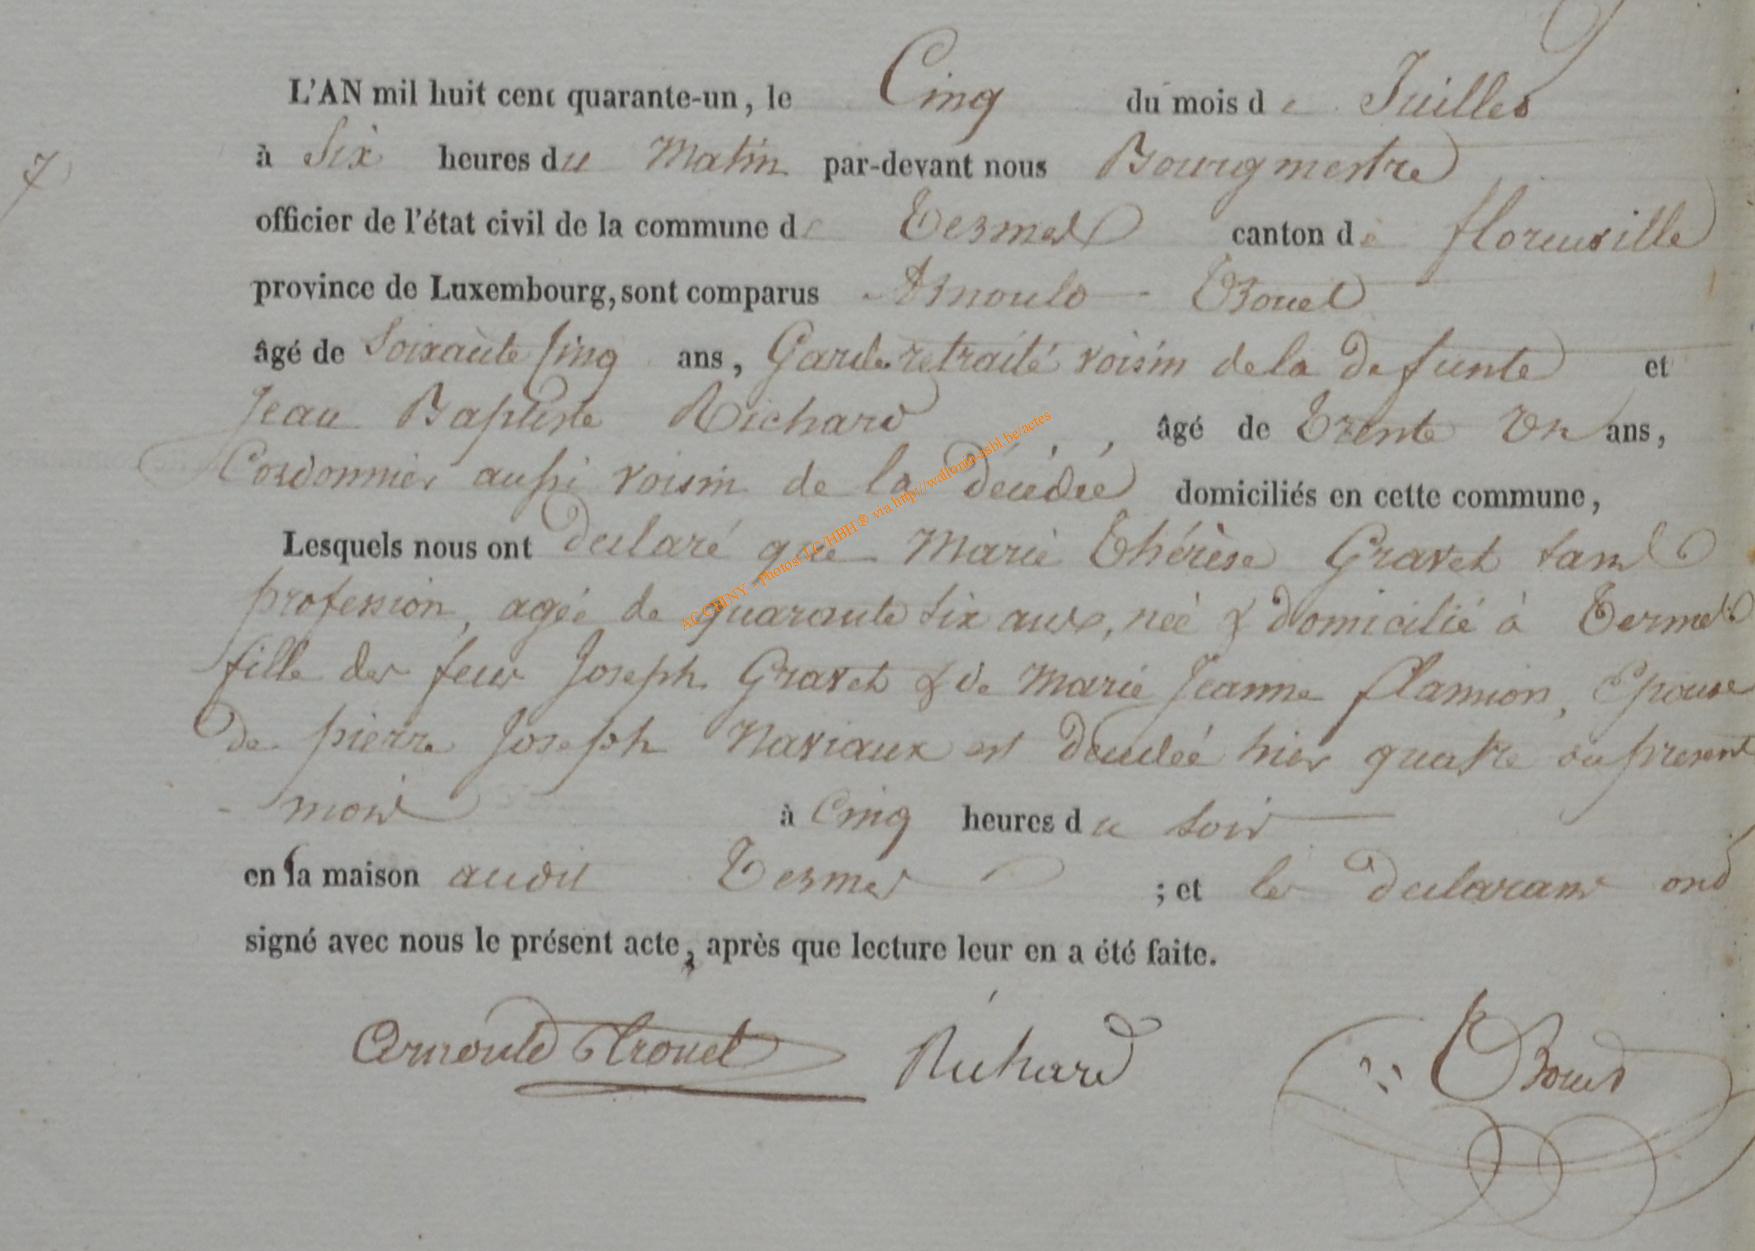 L'AN mil huit cent quarante-un, le Cinq du mois de Juillet
7
à Six heures du Matin par-devant nous Bourgmestre
officier de l'état civil de la commune de Termes canton de florenville
province de Luxembourg, sont comparus Arnould Trouet
âgé de Soixante sinq ans, Garde retraité voisin de la defunte et
Jean Baptiste Richard, âgé de Trente Un ans,
Cordonnier aussi voisin de la décédée domiciliés en cette commune,
Lesquels nous ont declaré que Marie Thérèse Gravet sans
profession, agée de quarante six ans, née & domicilié à Termes
fille des feus Joseph Gravet & de Marie Jeanne flamion, Epouse
de pierre Joseph Naviaux est decedeé hier quatre du present
mois à Cinq heures du soir
en sa maison audit Termes ; et les declarans ont
signé avec nous le présent acte, après que lecture leur en a été faite.
Arnould Trouet Richard
AC CHINY - Photos: LC/HBH ® via http://wallonia-asbl.be/actes